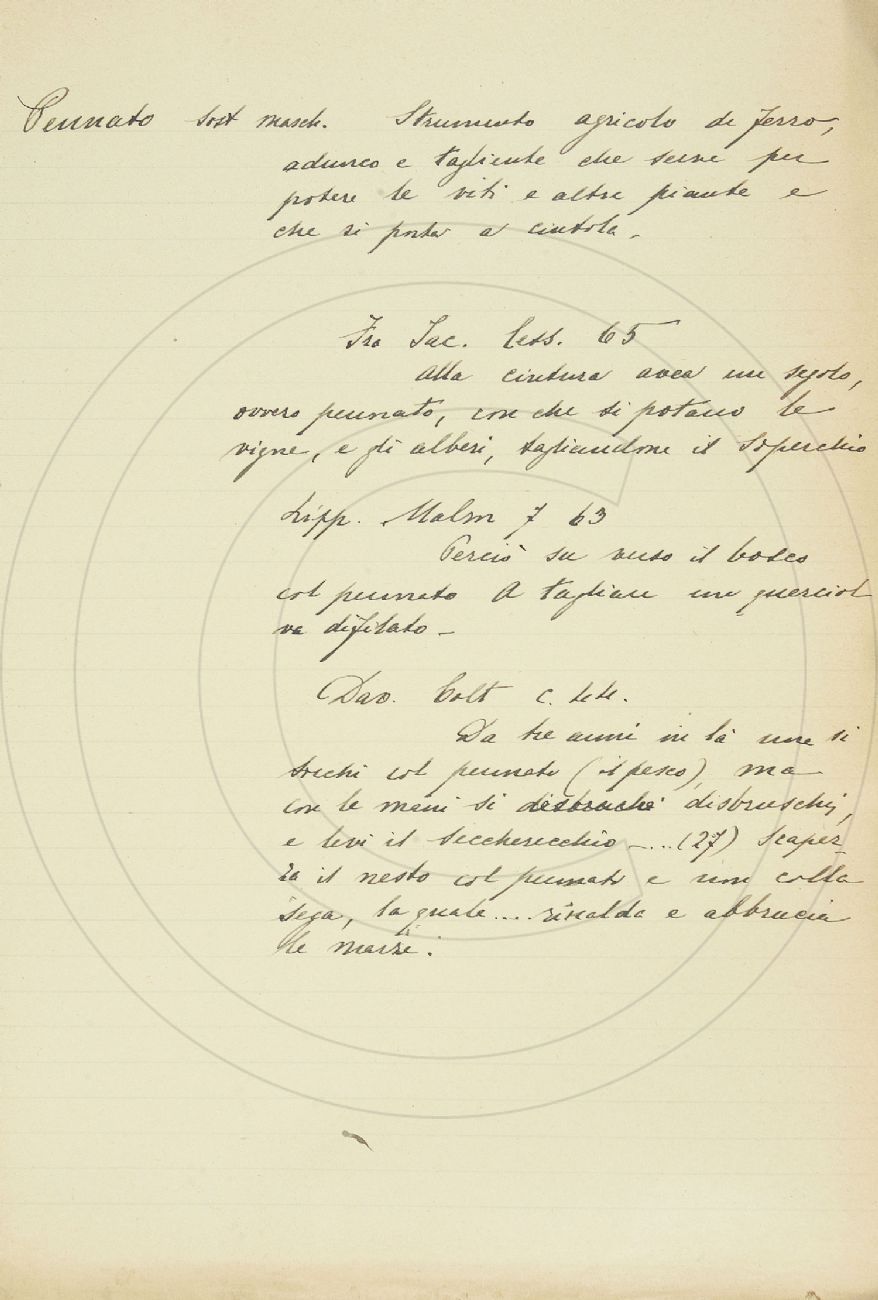 Pennato sost masch. Strumento agricolo di ferro,
adunco e tagliente che serve per
potere le viti e altre piante e
che si porta a cintola.
Fra Jac. Cess. 65
Alla cintura avea un segolo,
ovvero pennato, con che si potano le
vigne, e gli alberi, tagliandone il soperchio
Lipp. Malm 7 63
Perciò su verso il bosco
col pennato A tagliare un querciol
va difilato -
Dav. Colt c.
Da tre anni in là non si
tocchi col pennato (il pesco), ma
con le mani si disbruschi,
e levi il seccherecchio -... (27) Scapez-
za il nesto col pennato e non colla
sega, la quale .... riscalda e abbrucia
le marze.